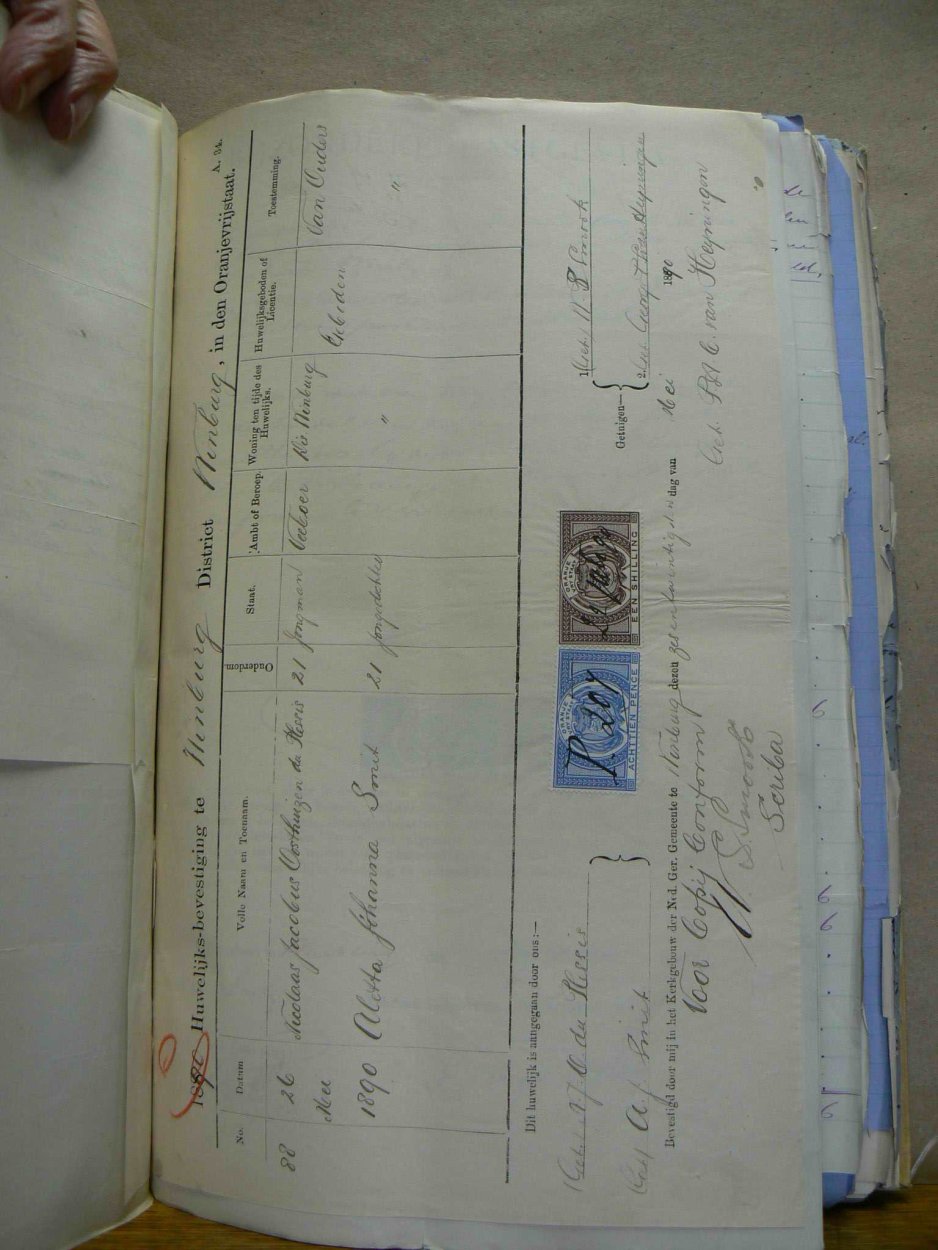 A. 34.
1890 Huwelijks-bevestiging te Winburg District Winburg, in den Oranjevrijstaat.
No. Datum Volle Naam en Toenaam. Ouderdom. Staat. Ambt of Beroep. Woning ten tijde des Huwelijks. Huwelijksgeboden of Licentie. Toestemming.
88 26 Nicolaas Jacobus Oosthuizen du Plessis 21 Jongman Veeboer Dis Winburg Geboden Van Ouders
Mei
1890 Aletta Johanna Smit 21 Jongedochter " "
Dit huwelijk is aangegaan door ons:—
Get. N J O du Plessis
Get A. J. Smit
Getuigen—
1. Get. W S Smook
2. Get. Georg van Heyningen
ORANJE
VRY STAAT
ACHTTIEN PENCE
P. 207
ORANJE
VRY STAAT
EEN SHILLING
Bevestigd door mij in het Kerkgebouw der Ned. Ger. Gemeente te Winburg dezen zesentwintigsten dag van Mei 1890
Get. van Heyningen
Voor Copij Conform
Smook
Scriba